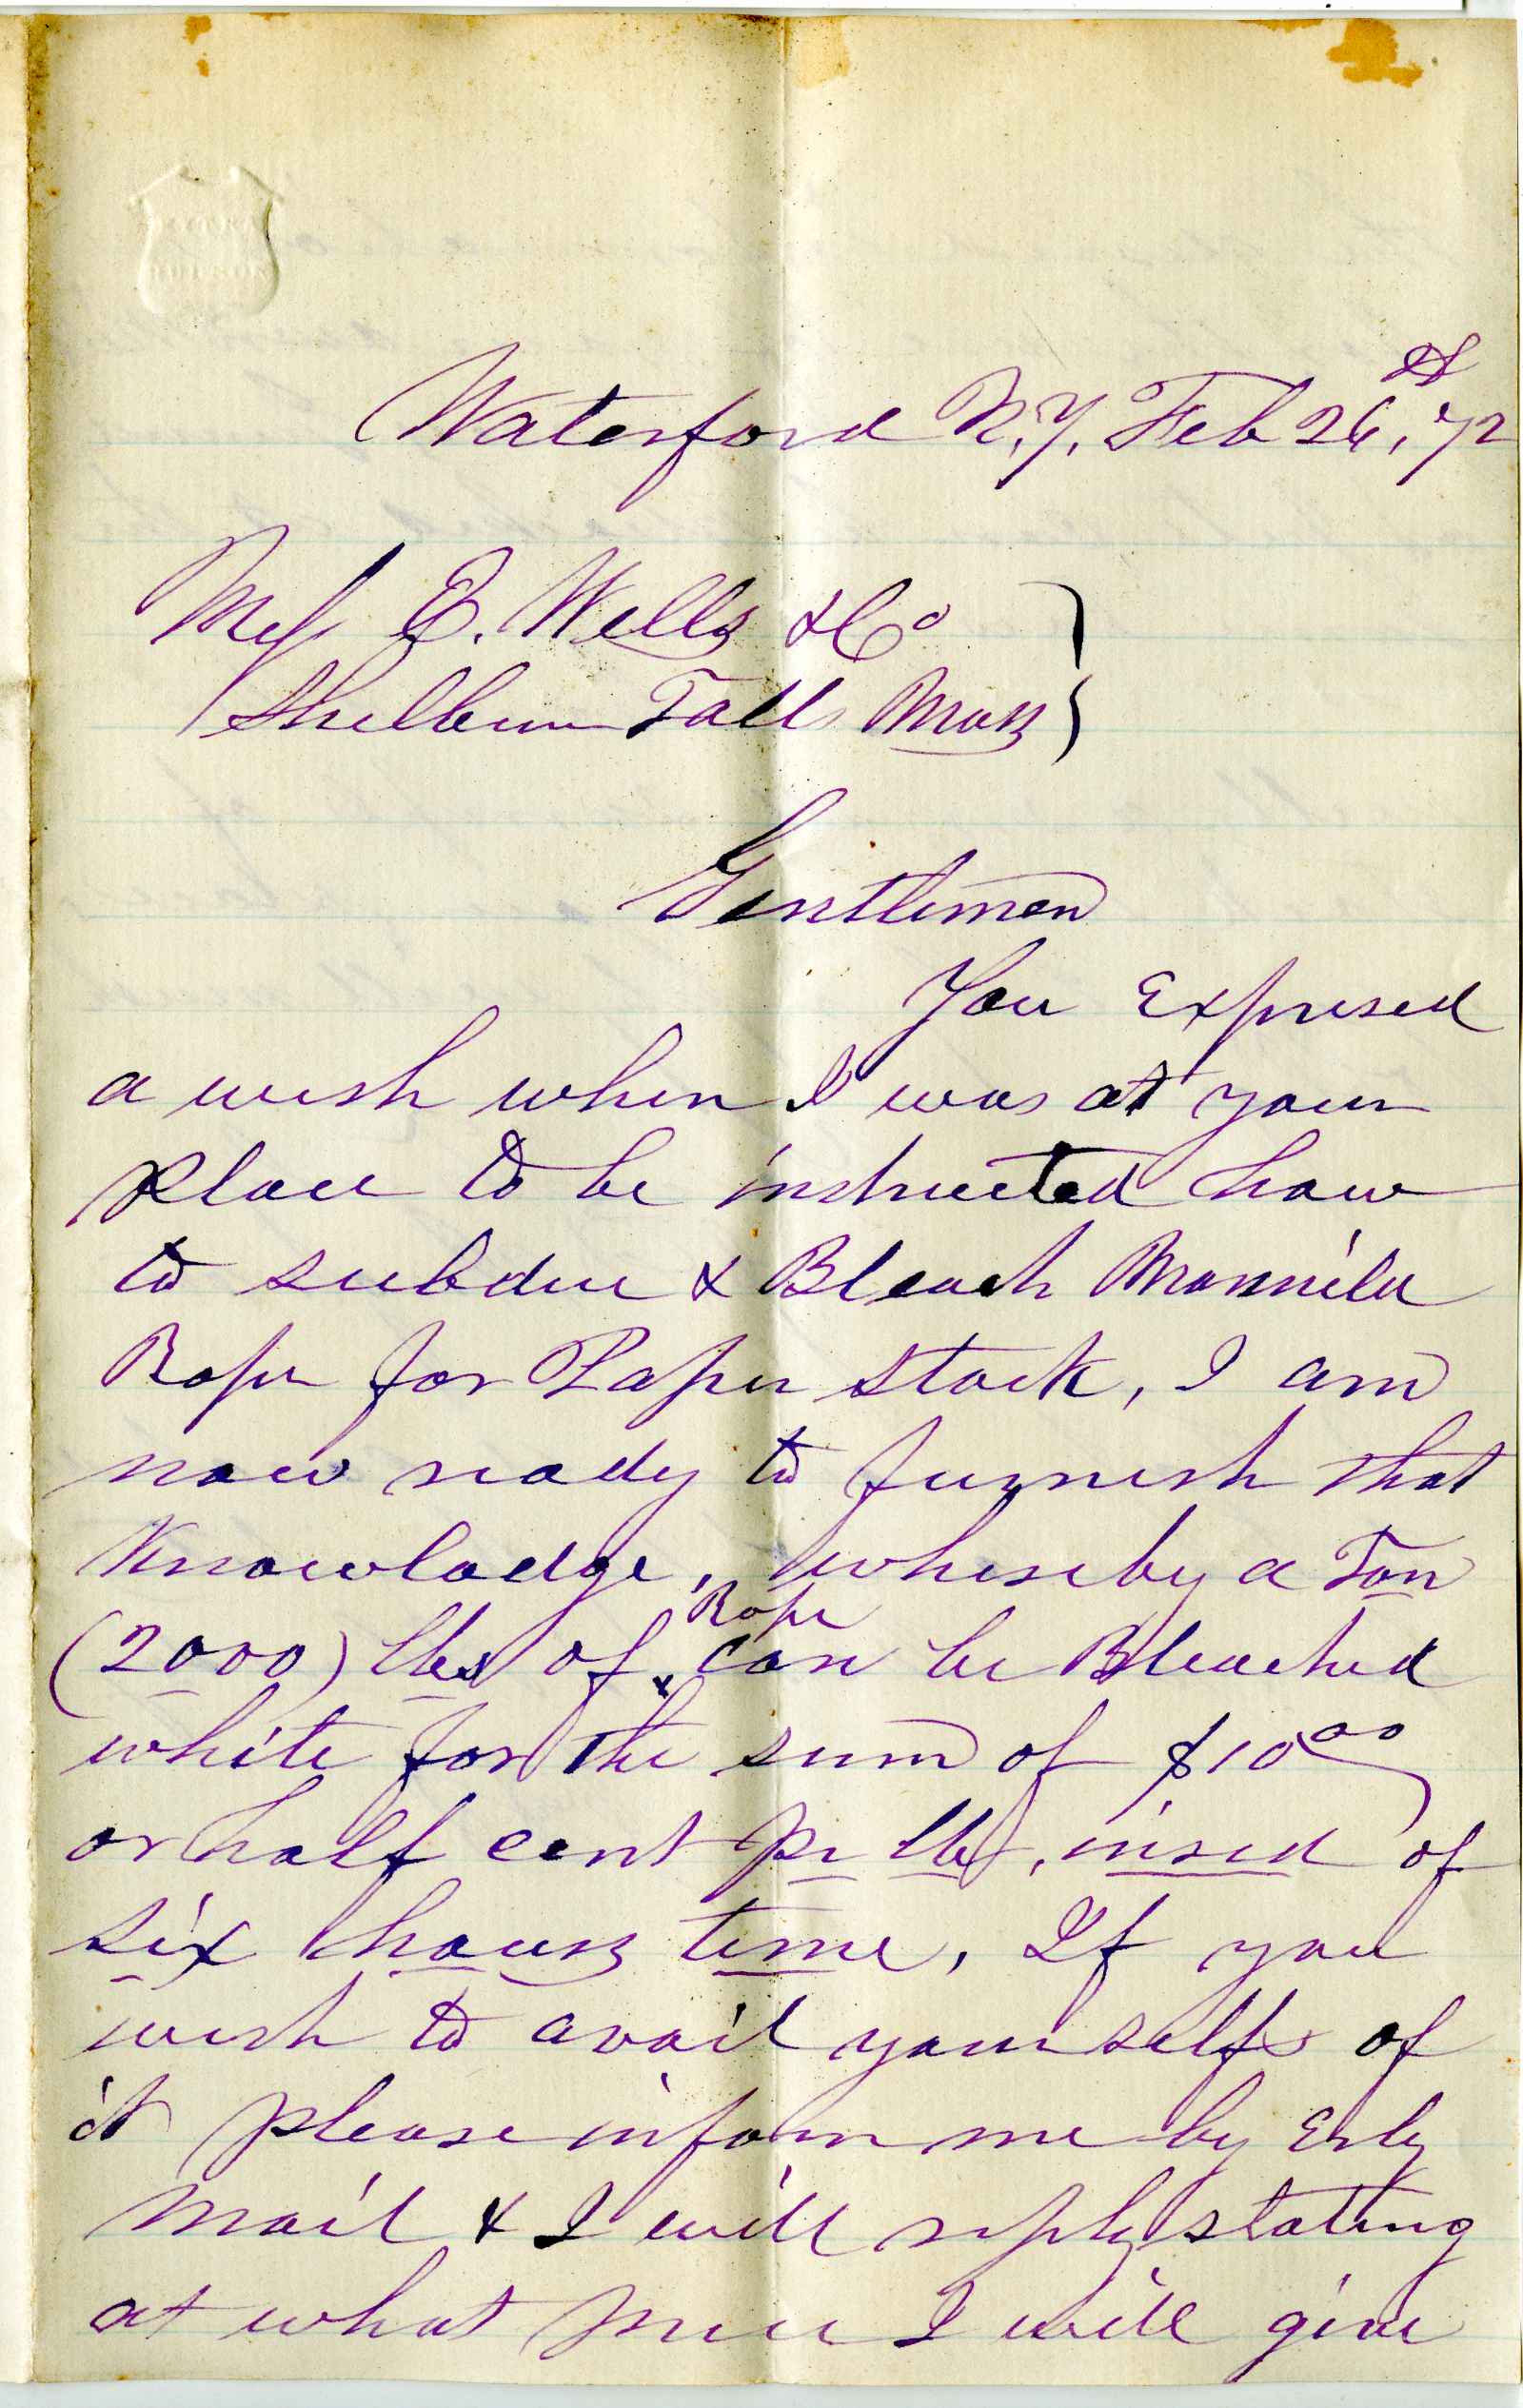 Waterford N.Y. Feb 26th, 72
Mess E. Wells & Co
Shelburn Falls Mass
Gentlemen
You Expresed
a wish when I was at your
place to be instructed how
to subdue & Bleach Mannila
Rope for Paper stock, I am
now ready to furnish that
Knowladge, whereby a Ton
(2000) lbs of Rope can be Bleached
white for the sum of $10.00
or half cent pr lb, insid of
six hours time, If you
wish to avail yourselfs of
it please inform me by Erly
Mail & I will reply stating
at what price I will give